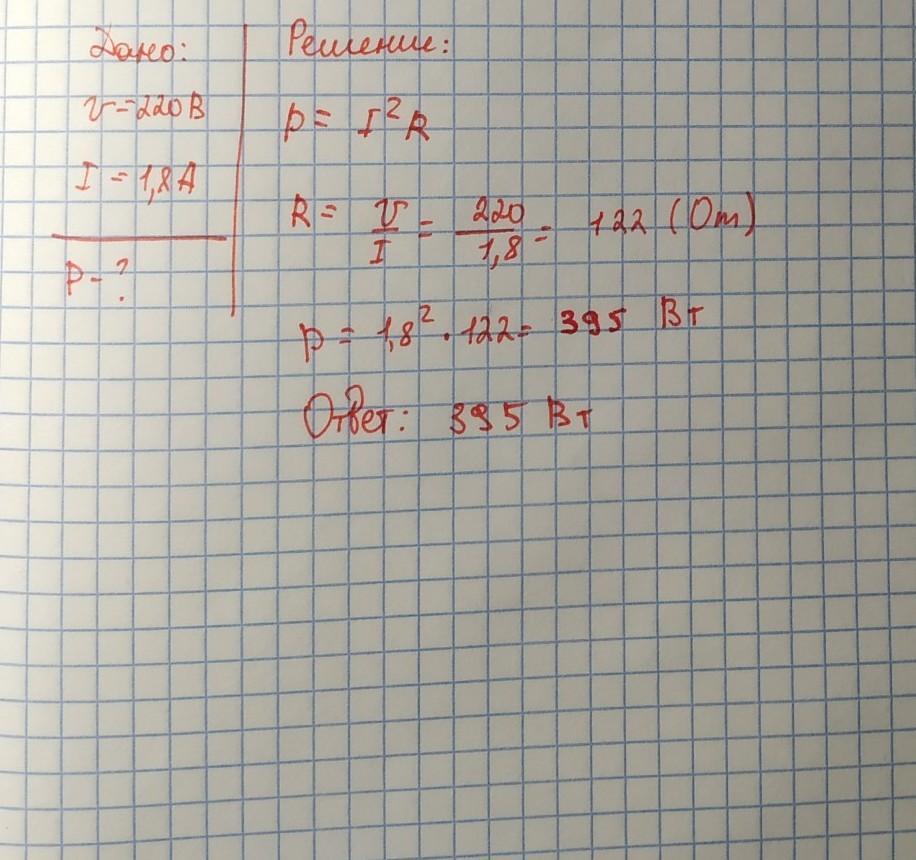 Дано:
U=220В
I = 1,8А
P-?
Решение:
P= I²R
R= U/I = 220/1,8= 122 (Om)
P= 1,8² · 122= 395 Вт
Ответ: 395 Вт